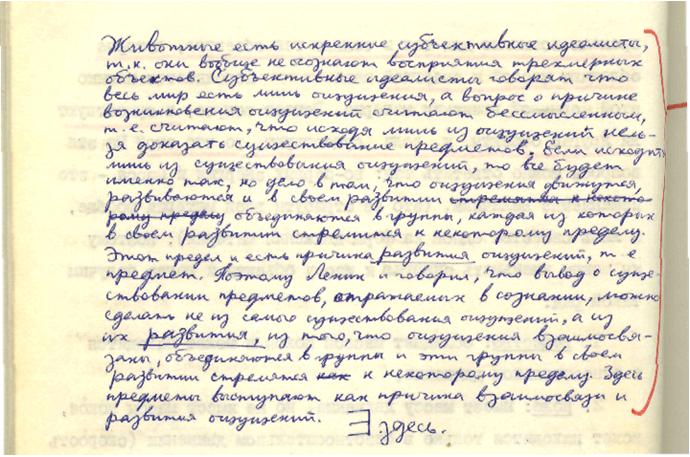 Животные есть искренние субъективные идеалисты,
т.к. они вообще не осознают восприятия трехмерных
объектов. Субъективные идеалисты говорят что
весь мир есть лишь ощущения, а вопрос о причине
возникновения ощущений считают бессмысленным,
т.е. считают, что исходя лишь из ощущений нель-
зя доказать существование предметов. Если исходить
лишь из существования ощущений, то все будет
именно так, но дело в том, что ощущения движутся,
развиваются и в своем развитии стремятся к некото-
рому пределу объединяются в группы, каждая из которых
в своем развитии стремится к некоторому пределу.
Этот предел и есть причина развития ощущений, т.е
предмет. Поэтому Ленин и говорил, что вывод о суще-
ствовании предметов, отражаемых в сознании, можно
сделать не из самого существования ощущений, а из
их развития, из того, что ощущения взаимосвя-
заны, объединяются в группы и эти группы в своем
развитии стремятся как к некоторому пределу. Здесь
предметы выступают как причина взаимосвязи и
развития ощущений. здесь.